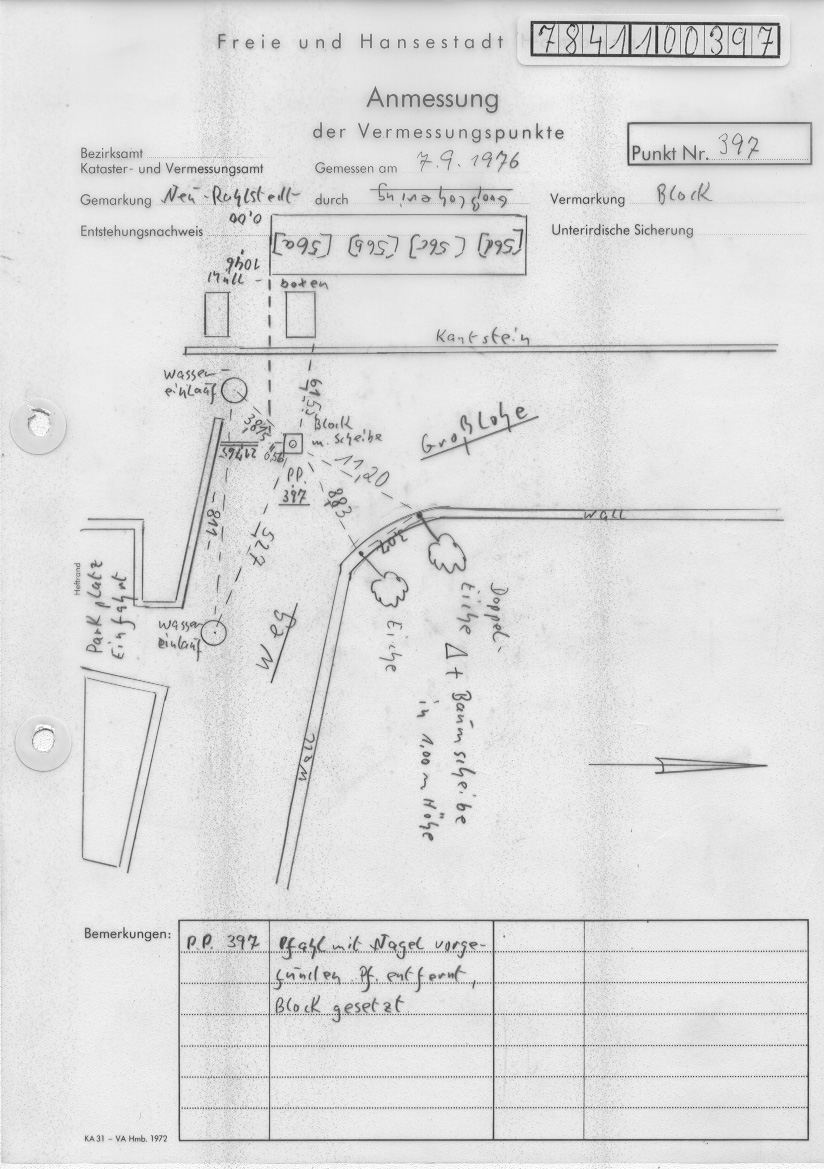 Freie und Hansestadt H
7841100397
Anmessung
der Vermessungspunkte
Punkt Nr. 397
Bezirksamt
Kataster- und Vermessungsamt
Gemessen am 7.9.1976
Gemarkung Neu-Rahlstedt
durch
Vermarkung Block
0,00
Entstehungsnachweis
[56a] [56b] [56c] [56d]
Unterirdische Sicherung
1046
Müll
boxen
Kantstein
Wasser
einlauf
Block
m. Scheibe
Großlohe
P.P.
397
11,20
883
811
527
Wall
307
Heftrand
Parkplatz
Einfahrt
Wasser
einlauf
Weg
Eiche
Doppel-
Eiche Δ + Baumscheibe
in 1,00 m Höhe
Wall
Bemerkungen:
P.P. 397
Pfahl mit Nagel vorge-
funden Pf. entfernt,
Block gesetzt
KA 31 – VA Hmb. 1972